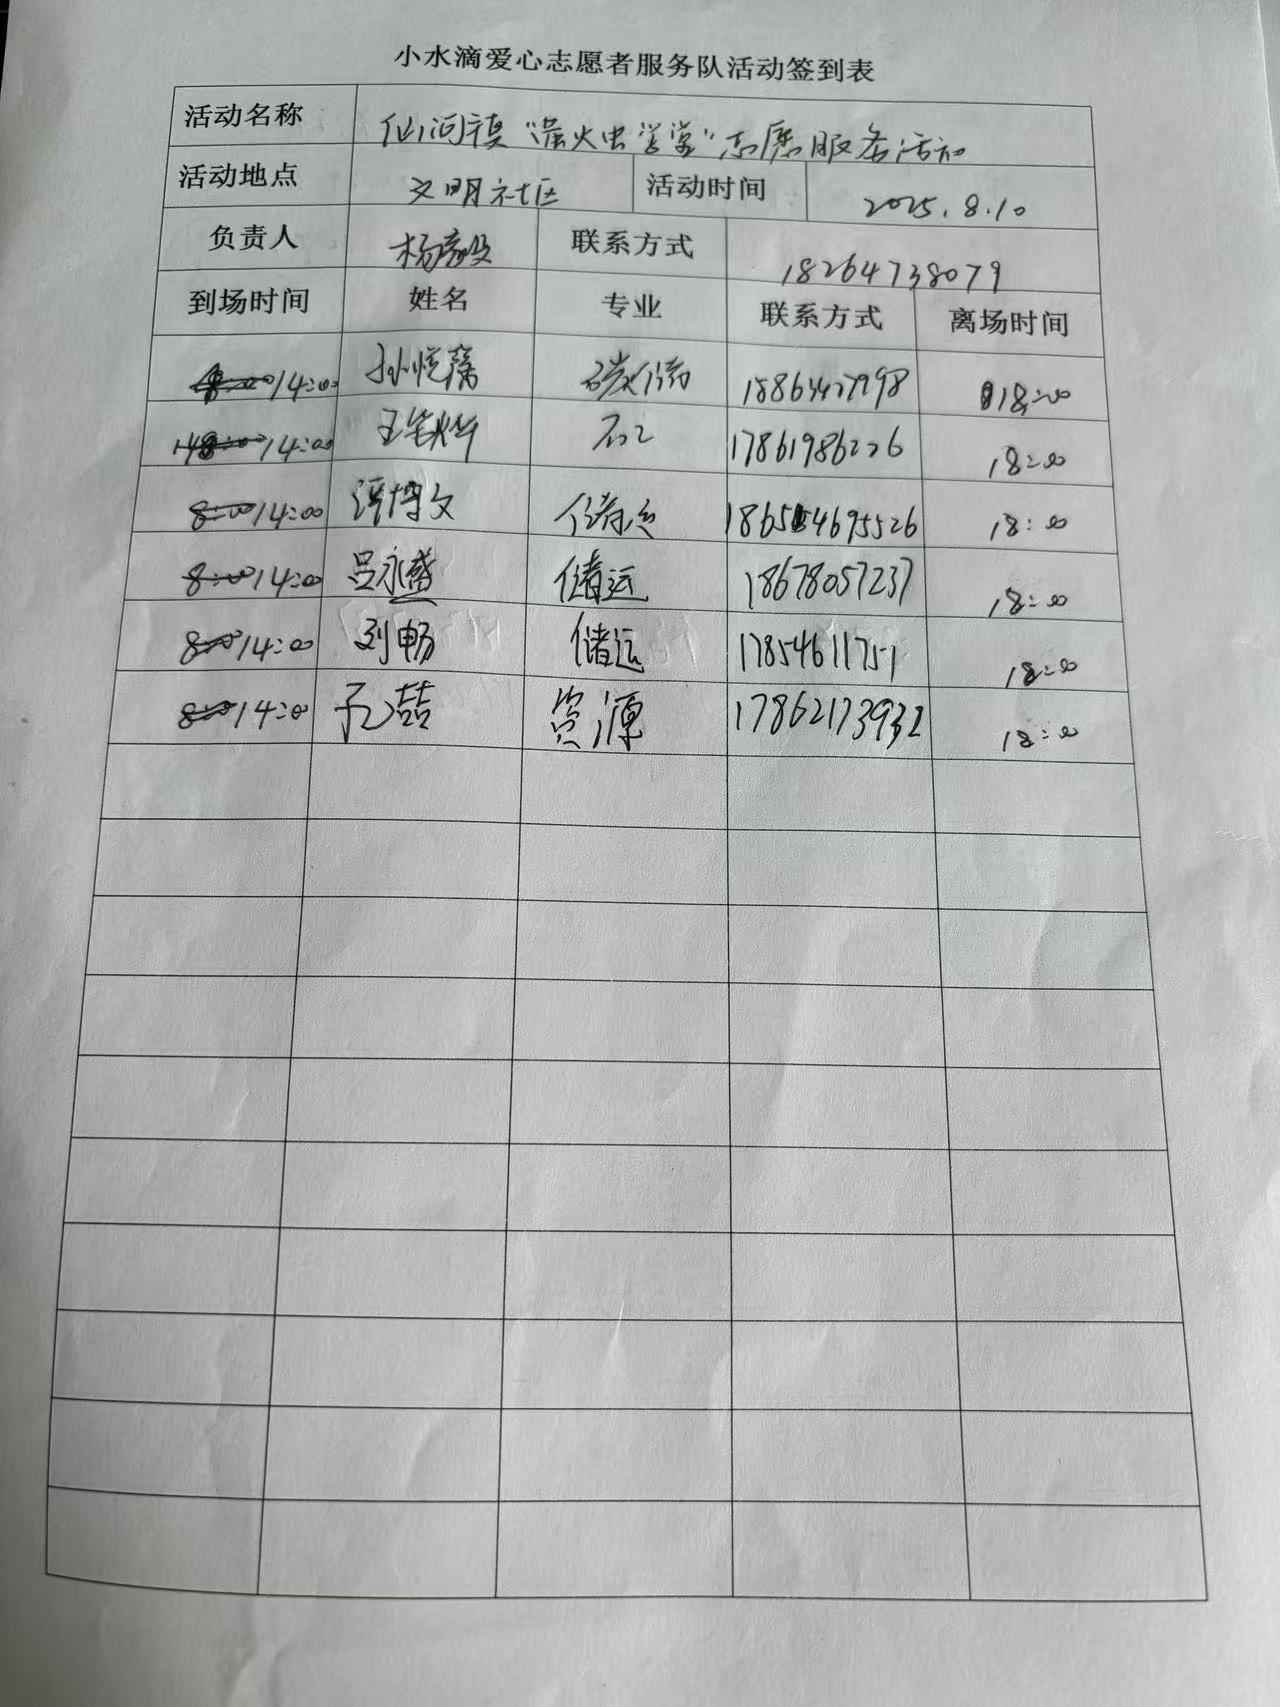 小水滴爱心志愿者服务队活动签到表
活动名称 仙河镇“萤火虫学堂”志愿服务活动
活动地点 文明社区 活动时间 2025.8.10
负责人 杨 联系方式 18264738079
到场时间 姓名 专业 联系方式 离场时间
14:00 孙悦 碳储 18:00
14:00 王 石工 17861986226 18:00
8:00 14:00 博文 储运 18654695526 18:00
8:00 14:00 吕永盛 储运 18678057237 18:00
8:00 14:00 刘畅 储运 17854611751 18:00
8:00 14:00 孔喆 资源 17862173932 18:00